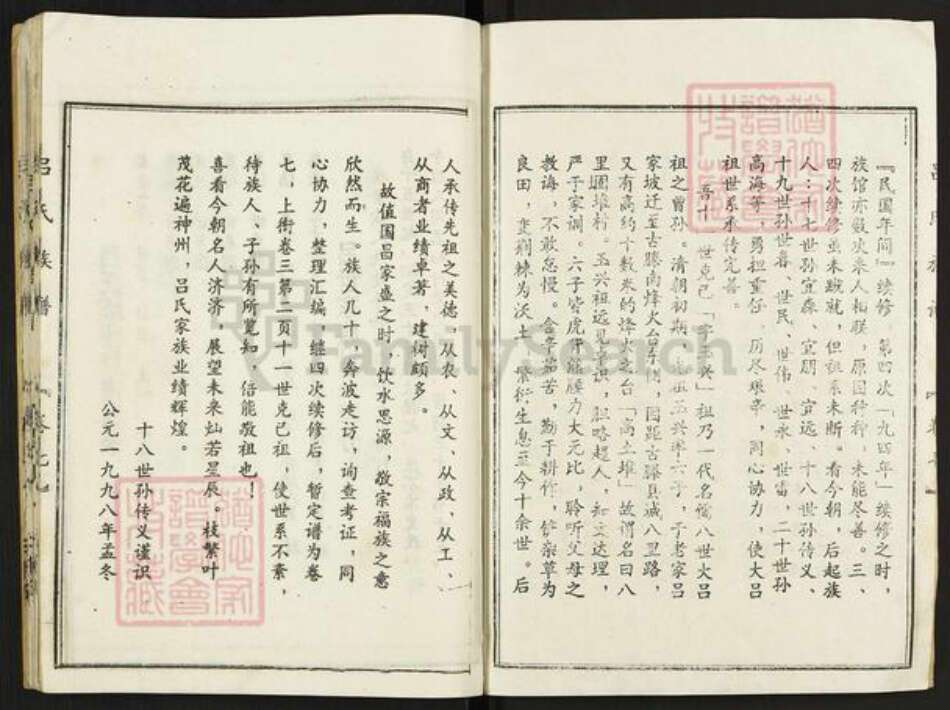 『民国年间』续修，第四次「一九四年」续修之时，
族馆亦数次来人相联，原因种种，未能尽善。三、
四次续修虽未成就，但祖系未断。看今朝，后起族
人：十七世孙宜森、宜朋、宜远、十八世孙传义、
十九世孙世喜、世民、世伟、世永、世雷，二十世孙
高海等，勇担重任，历尽艰辛，同心协力，使大吕
祖世系承传完善。
吾十一世克己「字玉兴」祖乃一代名儒八世大吕
祖之曾孙。清朝初期，先祖玉兴率六子，于老家吕
家坡迁至古滕南烽火台东侧，因距古滕县城八里路，
又有高约十数米的烽火之台「高土堆」故谓名曰八
里堌堆村。玉兴祖远见卓识，胆略超人，知文达理，
严于家调。六子皆虎背熊腰力大无比，聆听父母之
教诲，不敢怠慢。含辛茹苦，勤于耕作，铲杂草为
良田，变荆棘为沃土，繁衍生息至今十余世。后
人承传先祖之美德。从农、从文、从政、从工、
从商者业绩卓著，建树颇多。
故值国昌家盛之时，饮水思源，敬宗福族之意
欣然而生。族人几十，奔波走访，询查考证，同
心协力，整理汇编，继四次续修后，暂定谱为卷
七，上衔卷三第二页十一世克己祖，使世系不紊，
待族人、子孙有所览知，倍能敬祖也！
喜看今朝名人济济，展望未来灿若星辰。枝繁叶
茂花遍神州，吕氏家族业绩辉煌。
十八世孙传义谨识
公元一九九八年孟冬
吕氏族谱
卷七
FamilySearch